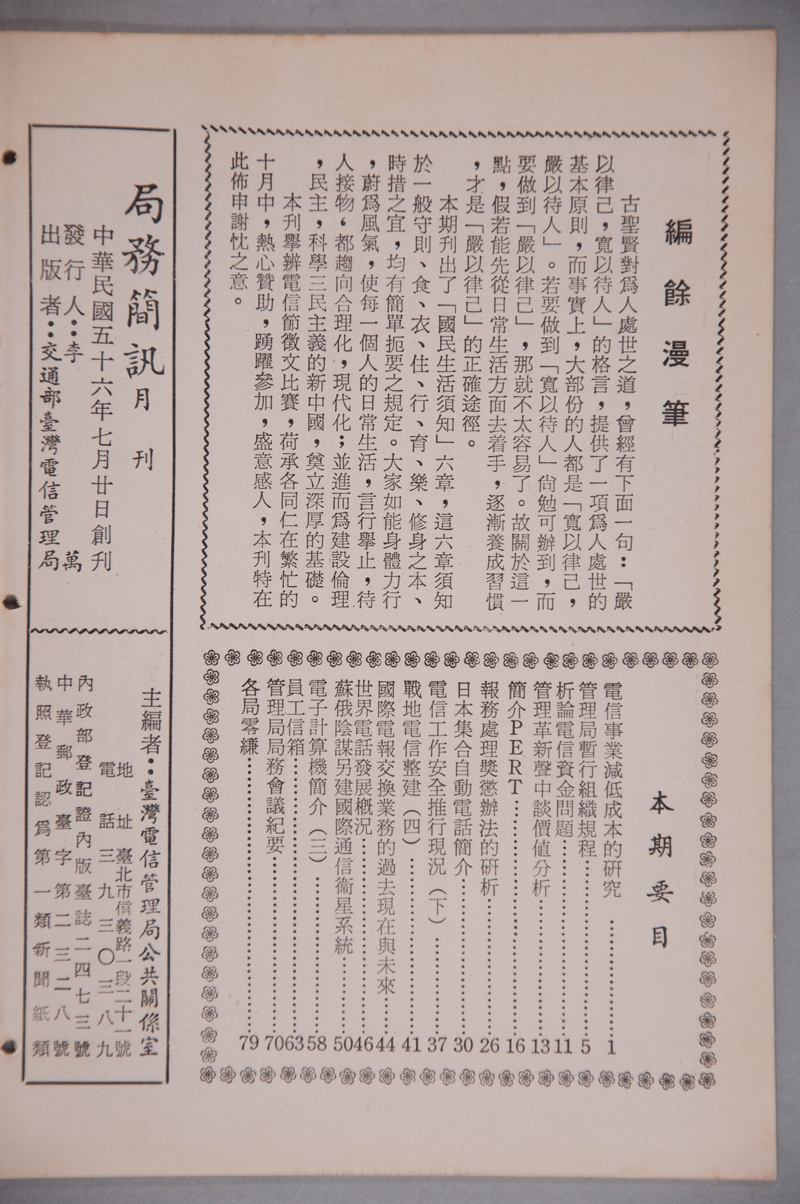 編餘漫筆
古聖賢對爲人處世之道，曾經有下面一句：「嚴
以律己，寬以待人」的格言，提供了一項爲人處世的
基本原則，而事實上，大部份的人都是「寬以律己，
嚴以待人」。若要做到「寬以待人」尙勉可辦到，而
要做到「嚴以律己」，那就不太容易了。故關於這一
點，假若能先從日常生活方面去着手，逐漸養成習慣
，才是「嚴以律己」的正確途徑。
本期刊出了「國民生活須知」六章，這六章須知
於一般守則、食、衣、住、行、育、樂、修身之本、
時措之宜，均有簡單扼要之規定。大家如能身體力行
，蔚爲風氣，使每一個人的日常生活，言行舉止，待
人接物，都趨向合理化，現代化；並進而爲建設倫理
，民主，科學三民主義的新中國，奠立深厚的基礎。
本刊舉辦電信節徵文比賽，荷承各同仁在繁忙的
十月中，熱心贊助，踴躍參加，盛意感人，本刊特在
此佈申謝忱之意。
本期要目
電信事業減低成本的硏究………1
管理局暫行組織規程………5
析論電信資金問題………11
管理革新聲中談價值分析………13
簡介PERT………16
報務處理獎懲辦法的硏析………26
日本集合自動電話簡介………30
電信工作安全推行現況（下）………37
戰地電信整建（四）………41
國際電報交換業務的過去現在與未來………44
世界電話發展槪況………46
蘇俄陰謀另建國際通信衞星系統………50
電子計算機簡介（三）………58
員工信箱………63
管理局局務會議紀要………70
各局零縑………79
局務簡訊月刊
中華民國五十六年七月廿日創刊
發行人：李萬
出版者：交通部臺灣電信管理局
主編者：臺灣電信管理局公共關係室
地址臺北市信義路一段二十一號
電話三九三〇三八九
內政部登記證內版臺誌二四七三號
中華郵政臺字第二三二八號
執照登記認爲第一類新聞紙類